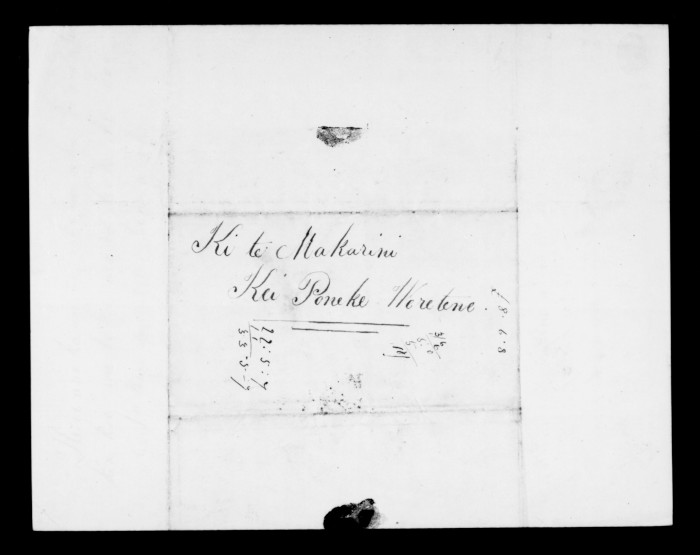 Ki te Makarini
Kei Poneke Woretene.
22:5:7
11
33.5.7